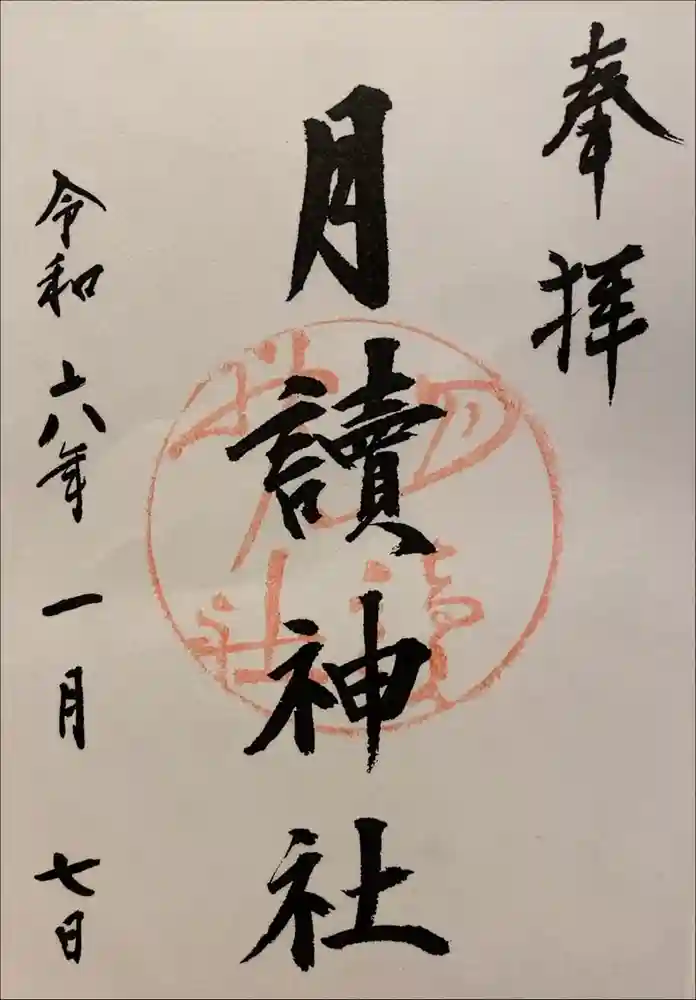 奉拝
月讀神社
令和六年一月七日